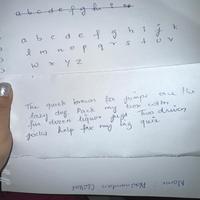 a b c d e f g h i
a b c d e f g h i j k
l m n o p q r s t u v
w x y z
The quick brown fox jumps over the
lazy dog. Pack my box with
five dozen liquor jugs. Two driven
jocks help fax my big quiz
Name :